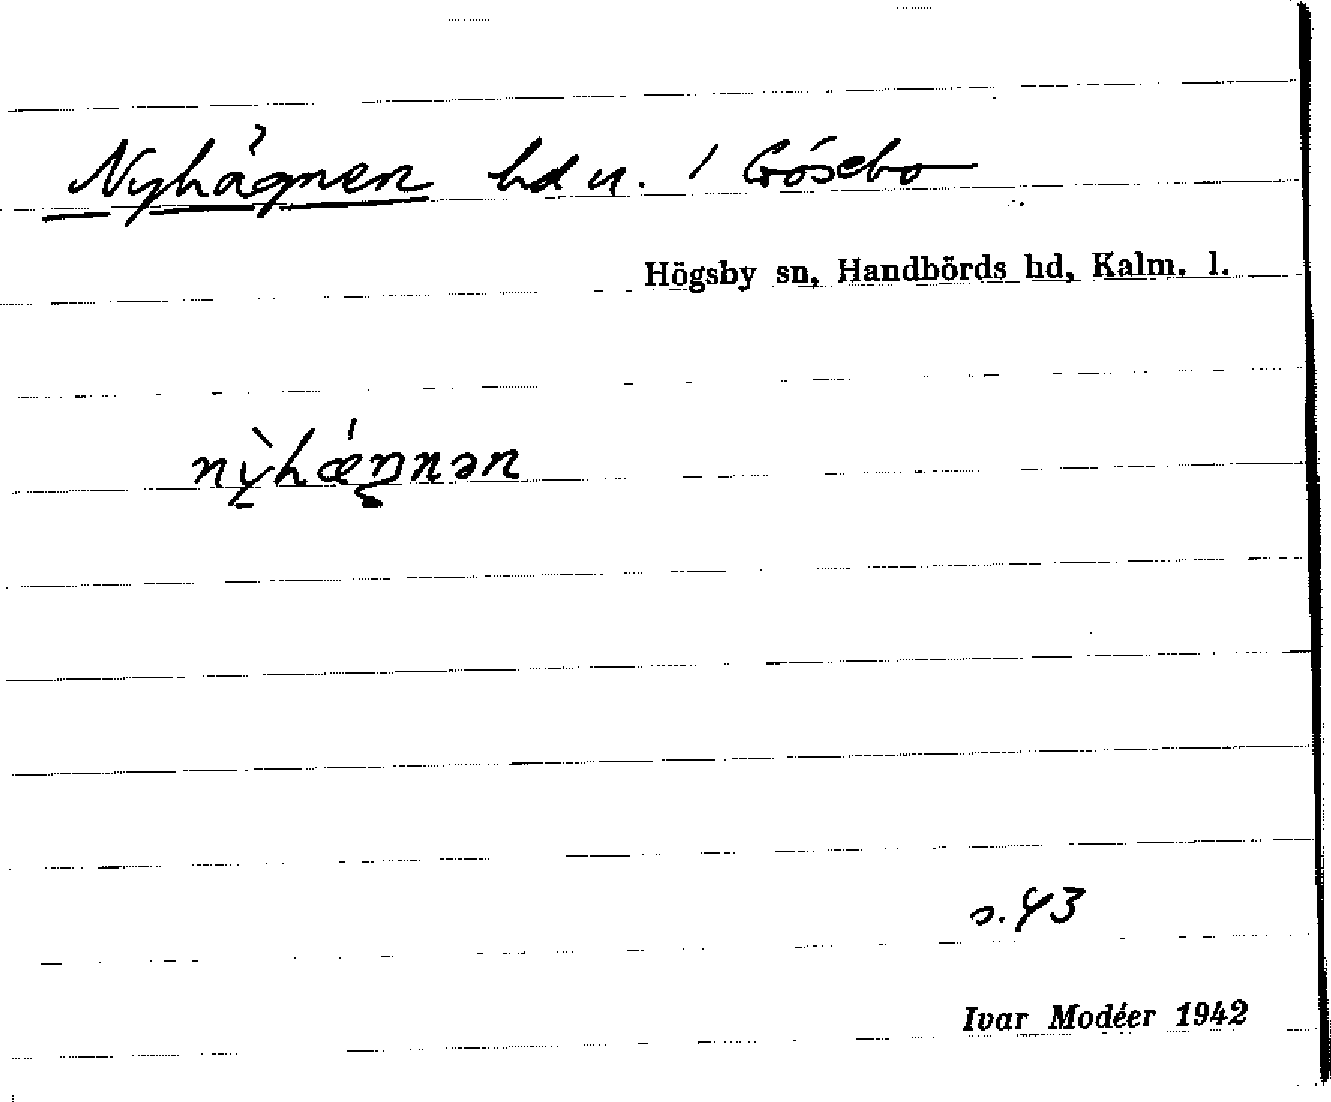 Nyhägnen hdn. / Gösebo
Högsby sn, Handbörds hd, Kalm. l.
nỳhǽŋnən
s. 43
Ivar Modéer 1942